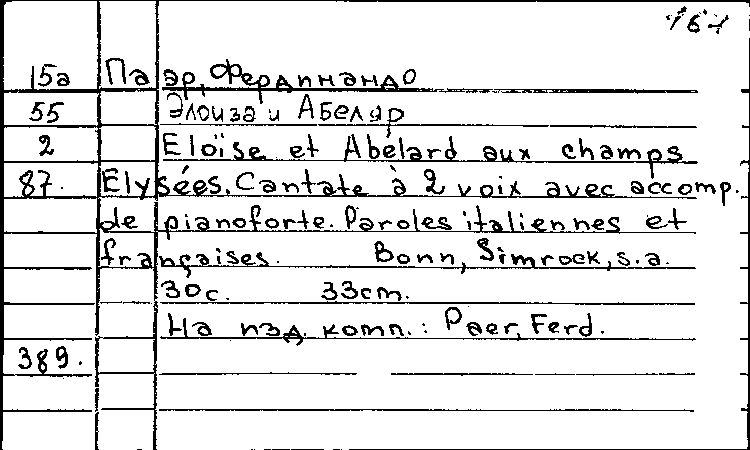 161
15а Паэр, Фердинандо
55 Элоиза и Абеляр
2 Eloïse et Abélard aux champs
87. Elysées. Cantate à 2 voix avec accomp.
de pianoforte. Paroles italiennes et
françaises. Bonn, Simrock, s.a.
30с. 33cm.
На изд. комп.: Paer, Ferd.
389.